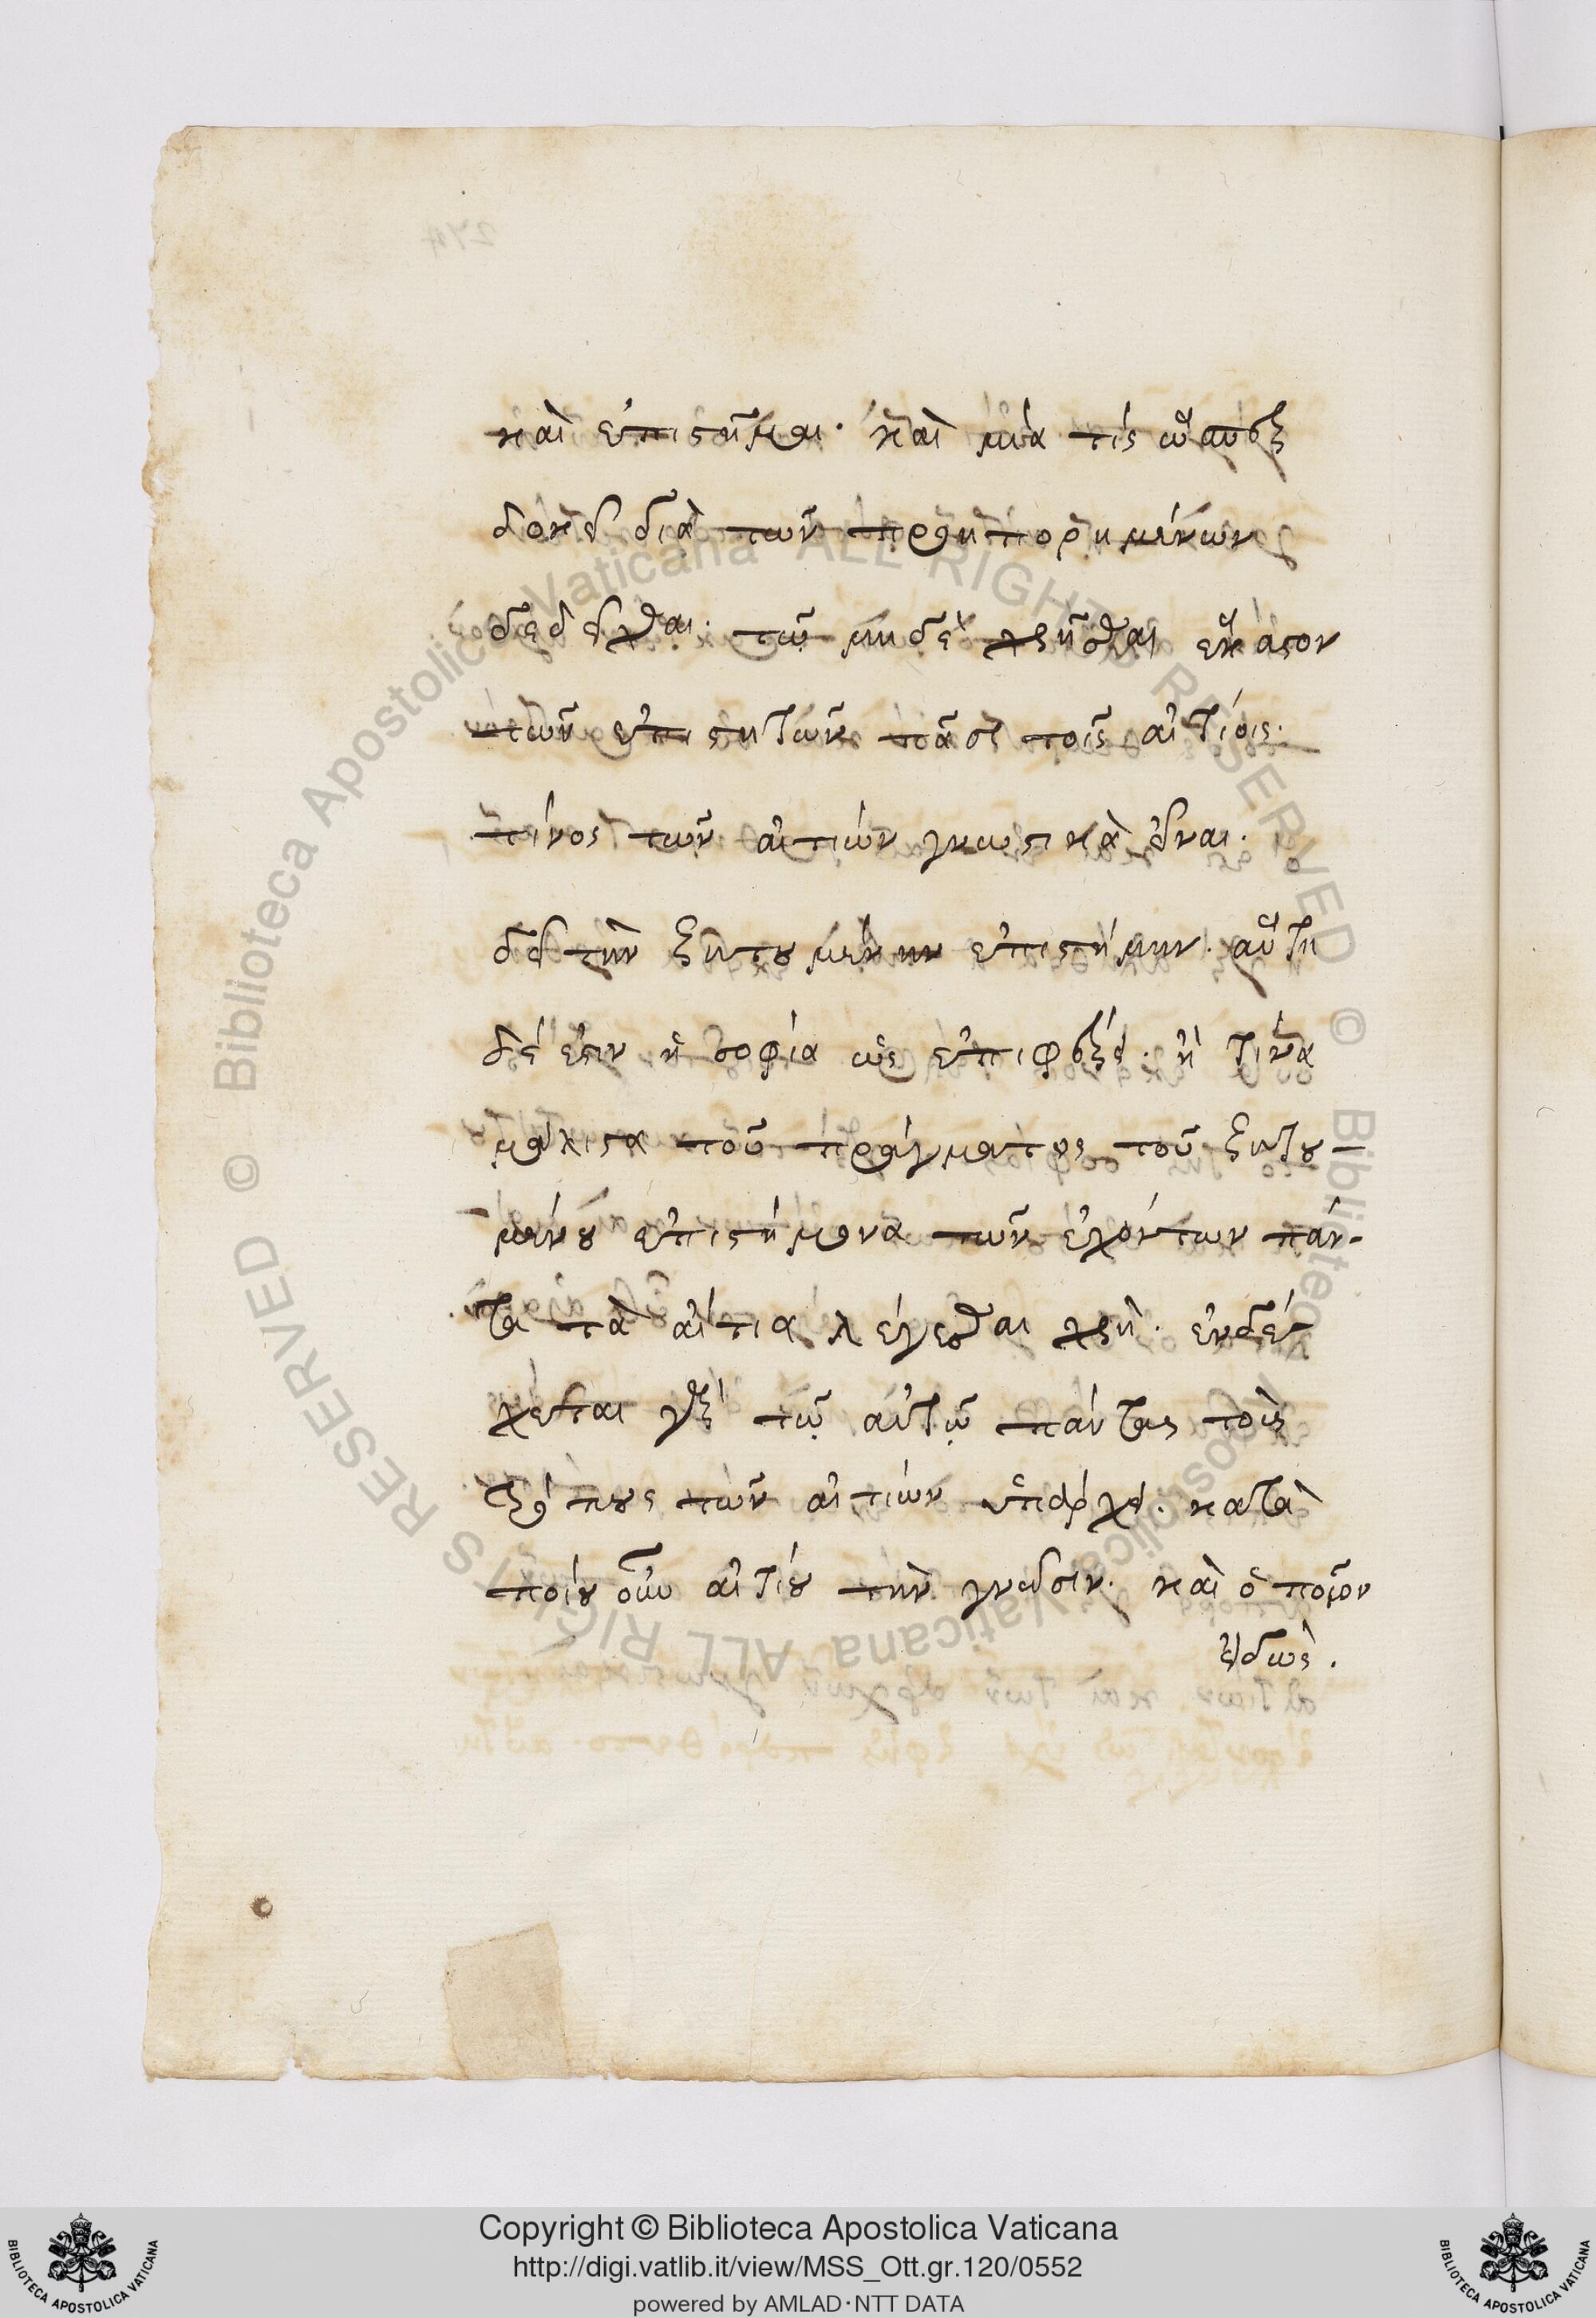 καὶ ἐπιστῆμαι· καὶ μία τίς ὥσπερ
δοκεῖ διὰ τῶν προηπορημένων
δεδεῖχθαι· τῷ μηδὲ χρῆσθαι ἕκαστον
τῶν ἐπιστητῶν πᾶσι τοῖς αἰτίοις·
τίνος τῶν αἰτιών γνωστικὰ εἶναι·
δεῖ τὴν ζητουμένην ἐπιστήμην· αὕτη
δέ ἐστιν ἡ σοφία ὡς ἐπιφέρει· ἢ τίνα
μάλιστα τοῦ πράγματος τοῦ ζητου-
μένου ἐπιστήμονα τῶν ἐχόντων πάν-
τα τὰ αἴτια λέγεσθαι χρή· ἐνδέ-
χεται γὰρ τῷ αὐτῷ πάντας τοὺς
τρόπους τῶν αἰτιών ὑπάρχειν· κατὰ
ποίου οὖν αἰτίου τὴν γνῶσιν· καὶ ὁ ποῖον
εἰδώς.
Copyright © Biblioteca Apostolica Vaticana
http://digi.vatlib.it/view/MSS_Ott.gr.120/0552
powered by AMLAD·NTT DATA
BIBLIOTECA APOSTOLICA VATICANA
BIBLIOTECA APOSTOLICA VATICANA
© Biblioteca Apostolica Vaticana ALL RIGHTS RESERVED
© Biblioteca Apostolica Vaticana ALL RIGHTS RESERVED